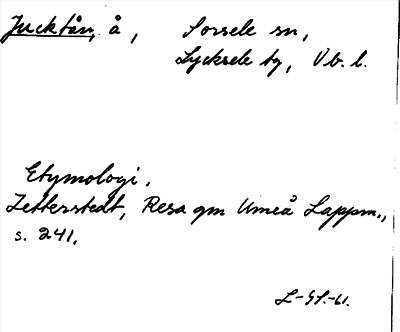 Jucktån, å, Sorsele sn,
Lycksele tg, Vb. l.
Etymologi.
Zetterstedt, Resa gm Umeå Lappm.,
s. 241.